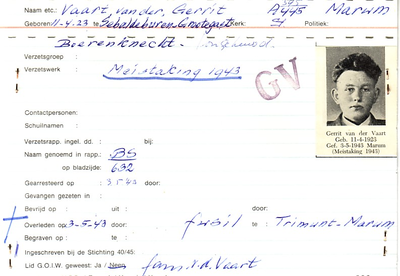 Naam etc.: Vaart, van der, Gerrit A445 Marum
Geboren 11-4-23 te Sebaldeburen-Grootegast Kerk: Politiek:
Boerenknecht -
Verzetsgroep :
Verzetswerk : Meistaking 1943
GV
Contactpersonen:
Schuilnaam :
Verzetsrapp. ingel. dd. : bij:
Naam genoemd in rapp.: BS
op bladzijde: 632
Gearresteerd op : 3.5.43 door:
Gevangen gezeten in :
Bevrijd op : uit : door:
Overleden op : 3-5-43 door: fusil te : Trimunt-Marum
Begraven op : te :
Ingeschreven bij de Stichting 40/45:
Lid G.O.I.W. geweest: Ja / Neen fam. v.d. Vaart
Gerrit van der Vaart
Geb. 11-4-1923
Gef. 3-5-1943 Marum
(Meistaking 1943)